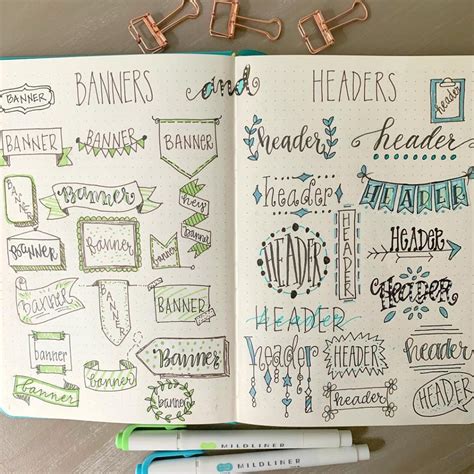 BANNERS and HEADERS
BANNER
BANNER
BANNER
BANNER
BANNER
Banner
hey
BANNER
BANNER
Banner
BANNER
Banner
Banner
BANNER
BANNER
banner
Banner
banner
BANNER
Banner
header
header
header
header
HEADER
HEADER
HEADER
HEADER
HEADER
HEADER
header
header
HEADER
header
header
HEADER
MILDLINER
MILDLINER